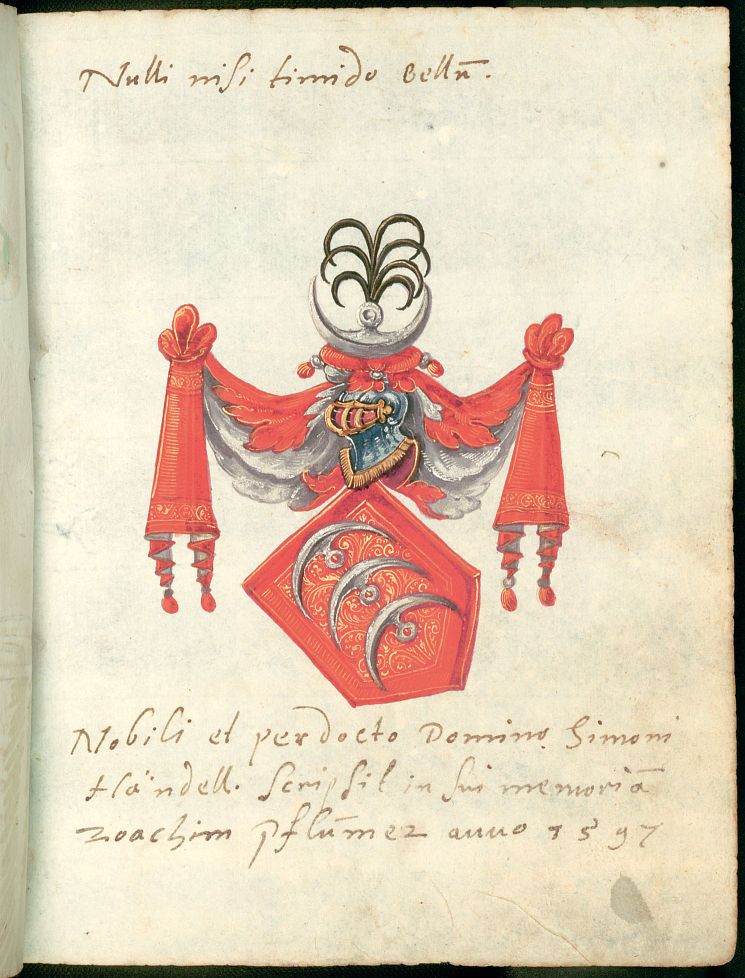 Nulli nisi timido Bellū.
Nobili et perdocto Domino Simoni
Händell. Scripsit in sui memoriā
Joachim Pflūmer anno 1597